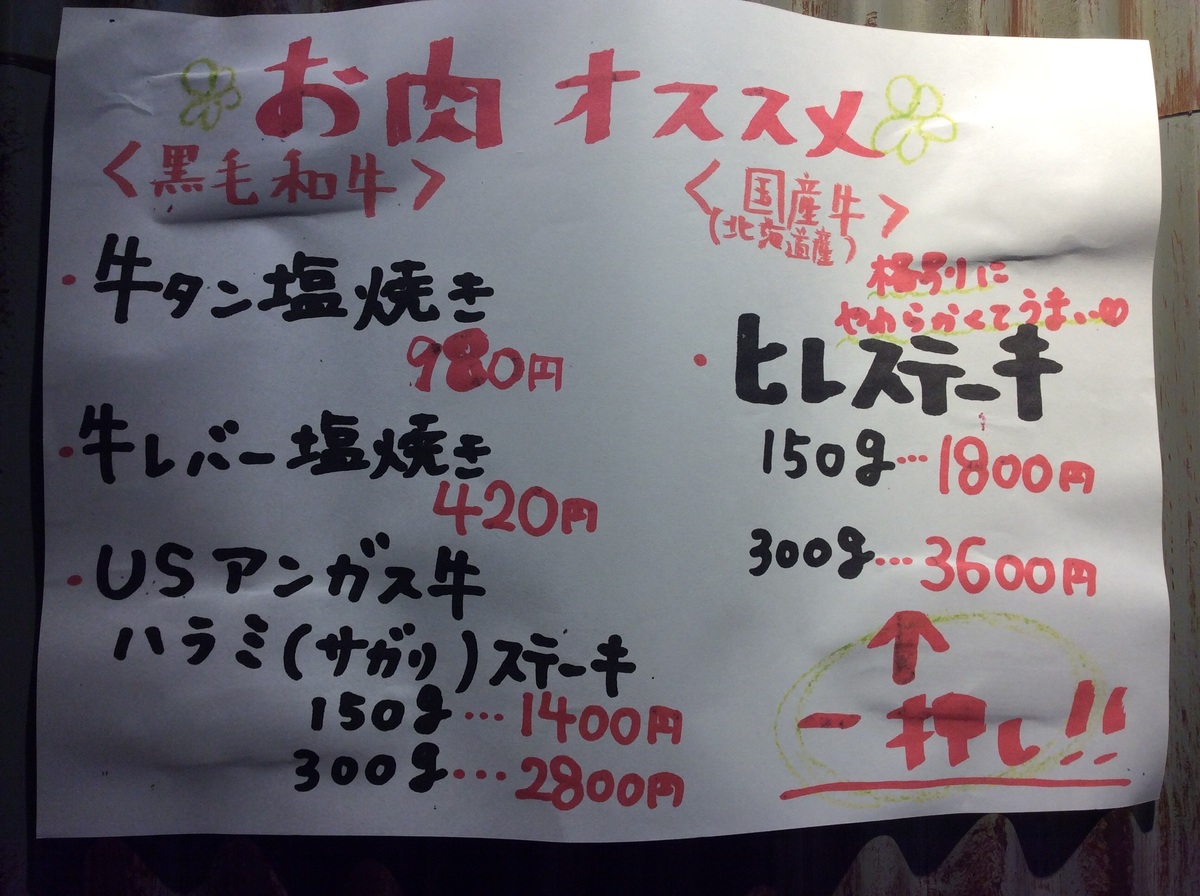 お肉 オススメ
<黒毛和牛>
・牛タン塩焼き
980円
・牛レバー塩焼き
420円
・USアンガス牛
ハラミ(サガリ)ステーキ
150g…1400円
300g…2800円
<国産牛>
(北海道産)
格別に
やわらかくてうまい♡
・ヒレステーキ
150g…1800円
300g…3600円
↑
一押し!!